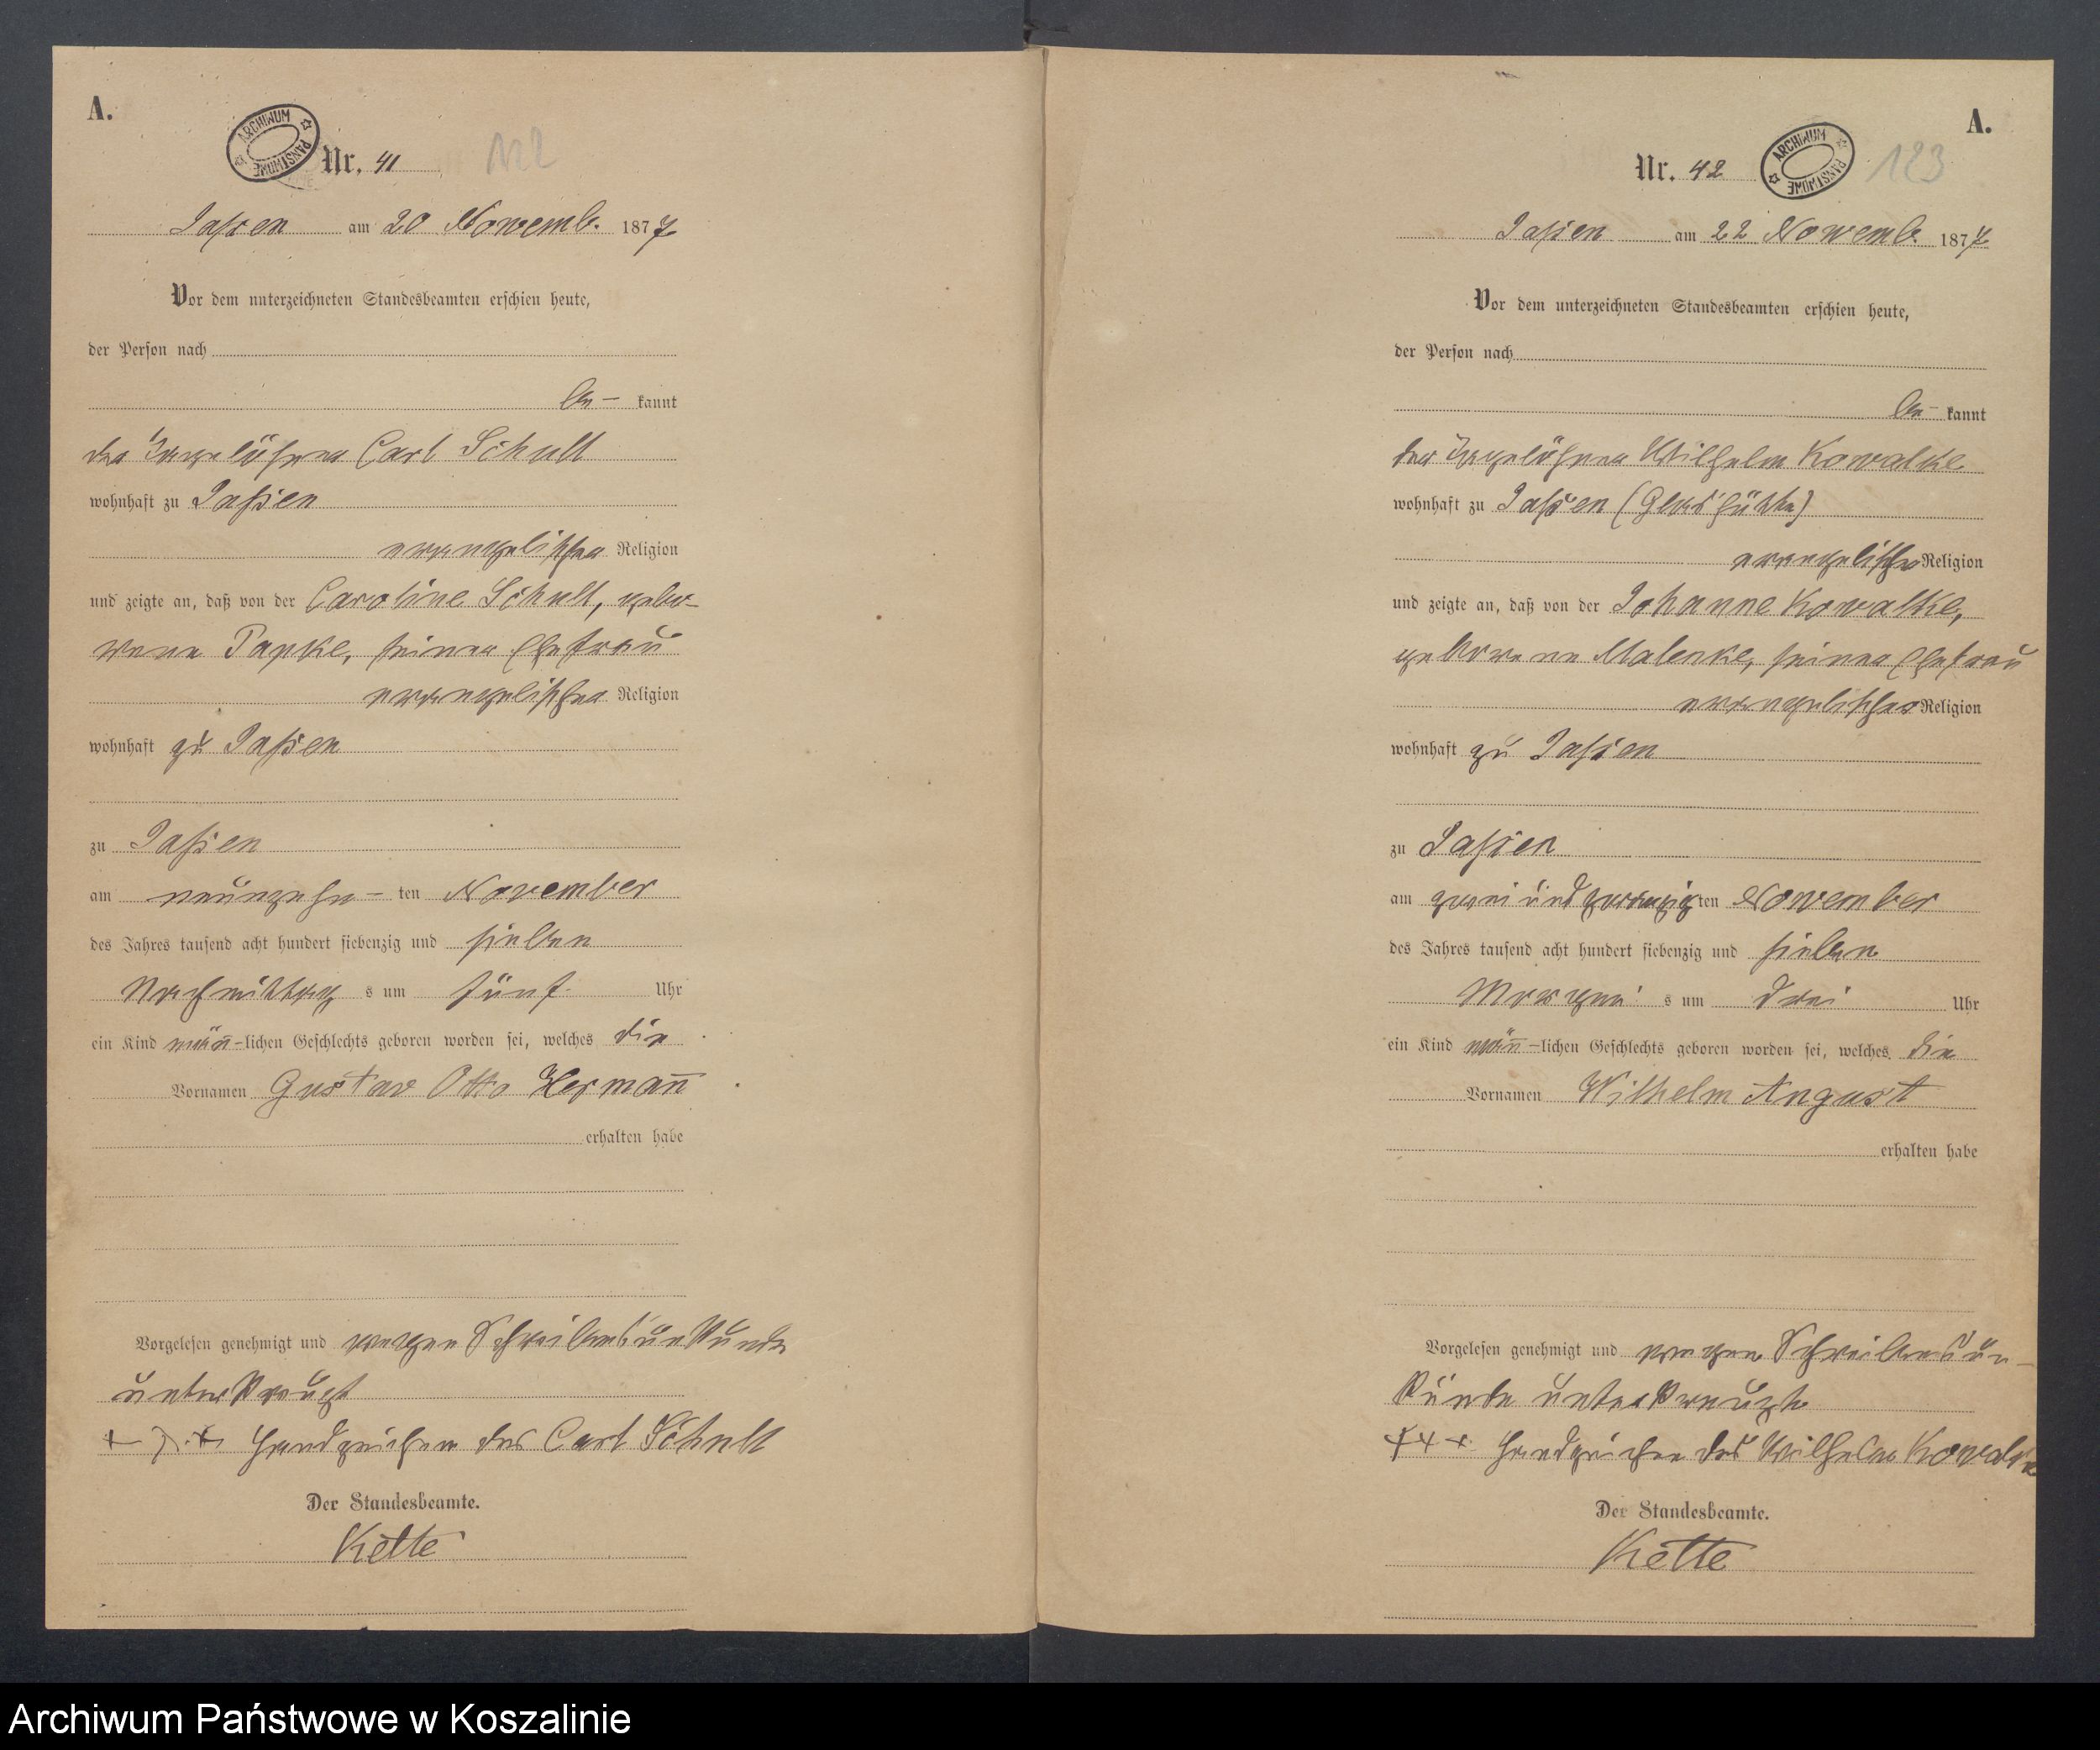 A.
ARCHIWUM PAŃSTWOWE
Nr. 41
122
Jassen am 20 Novemb. 1877
Vor dem unterzeichneten Standesbeamten erschien heute,
der Person nach
be- kannt
der Tagelöhner Carl Schult
wohnhaft zu Jassen
evangelischer Religion
und zeigte an, daß von der Caroline Schult, gebo-
rene Papke, seiner Ehefrau
evangelischer Religion
wohnhaft zu Jassen
zu Jassen
am neunzehn- ten November
des Jahres tausend acht hundert siebenzig und sieben
Nachmittag s um fünf Uhr
ein Kind männ-lichen Geschlechts geboren worden sei, welches die
Vornamen Gustav Otto Hermann
erhalten habe
Vorgelesen genehmigt und wegen Schreibensunkunde
unterkreuzt
+ + + Handzeichen des Carl Schult
Der Standesbeamte.
Kette
A.
Nr. 42
ARCHIWUM PAŃSTWOWE
123
Jassen am 22 Novemb. 1877
Vor dem unterzeichneten Standesbeamten erschien heute,
der Person nach
be- kannt
der Tagelöhner Wilhelm Kowalke
wohnhaft zu Jassen (Glashütte)
evangelischer Religion
und zeigte an, daß von der Johanne Kowalke,
geborene Malenke, seiner Ehefrau
evangelischer Religion
wohnhaft zu Jassen
zu Jassen
am zwei und zwanzig ten November
des Jahres tausend acht hundert siebenzig und sieben
Morgen s um drei Uhr
ein Kind männ-lichen Geschlechts geboren worden sei, welches die
Vornamen Wilhelm August
erhalten habe
Vorgelesen genehmigt und wegen Schreibensun-
kunde unterkreuzt
+++ Handzeichen des Wilhelm Kowalke
Der Standesbeamte.
Kette
Archiwum Państwowe w Koszalinie